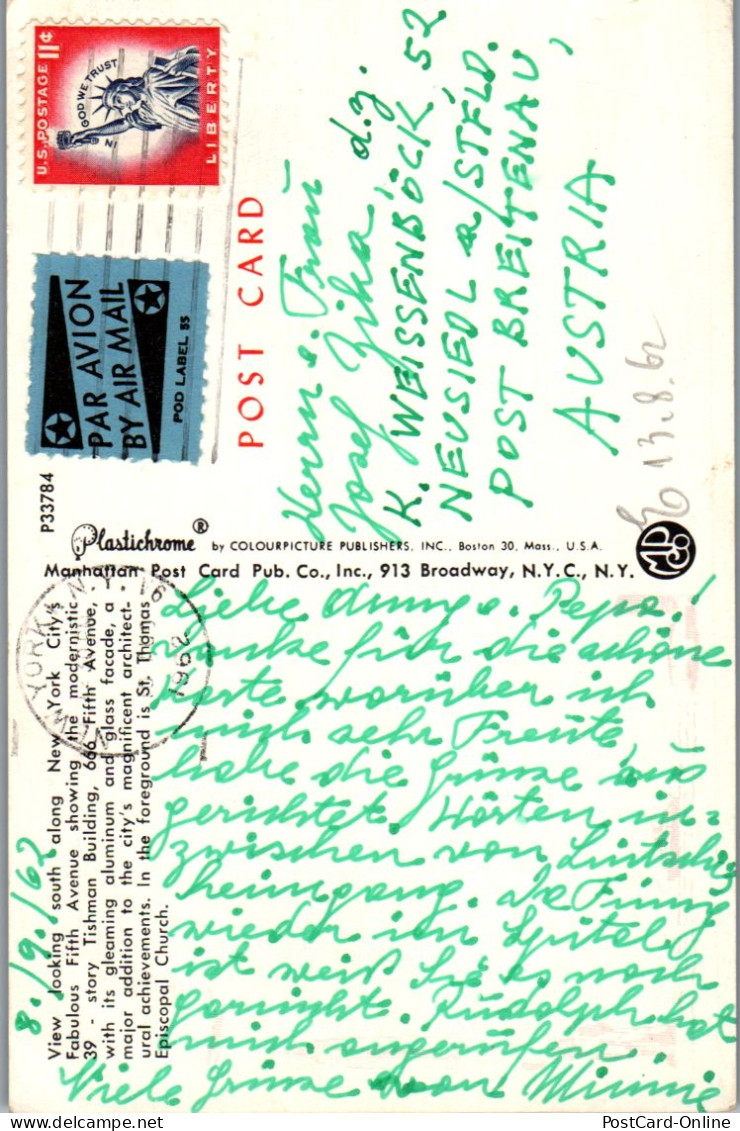 U.S. POSTAGE 11¢
IN GOD WE TRUST
LIBERTY
PAR AVION
BY AIR MAIL
POD LABEL 55
POST CARD
Herrn u. Frau
Josef Zika, d.z.
K. WEISSENBÖCK 52
NEUSIEDL a/STFLD.
POST BREITENAU,
AUSTRIA
13.8.62
P33784
Plastichrome®
by COLOURPICTURE PUBLISHERS, INC., Boston 30, Mass., U.S.A.
Manhattan Post Card Pub. Co., Inc., 913 Broadway, N.Y.C., N.Y.
NEW YORK, N.Y.
1962
View looking south along New York City's
Fabulous Fifth Avenue showing the modernistic
39 - story Tishman Building, 666 Fifth Avenue,
with its gleaming aluminum and glass facade, a
major addition to the city's magnificent architect-
ural achievements. In the foreground is St. Thomas
Episcopal Church.
8./9./62
Liebe u. Pepo!
Danke für die schöne
Karte worüber ich
mich sehr Freute
habe die Grüsse aus
gerichtet. Hörten in-
zwischen von
heimgang. Die
wieder im Spital
ist weiß Sie es noch
garnicht. Rudolph hat
mich angerufen.
Viele Grüsse von Minnie
PostCard-Online